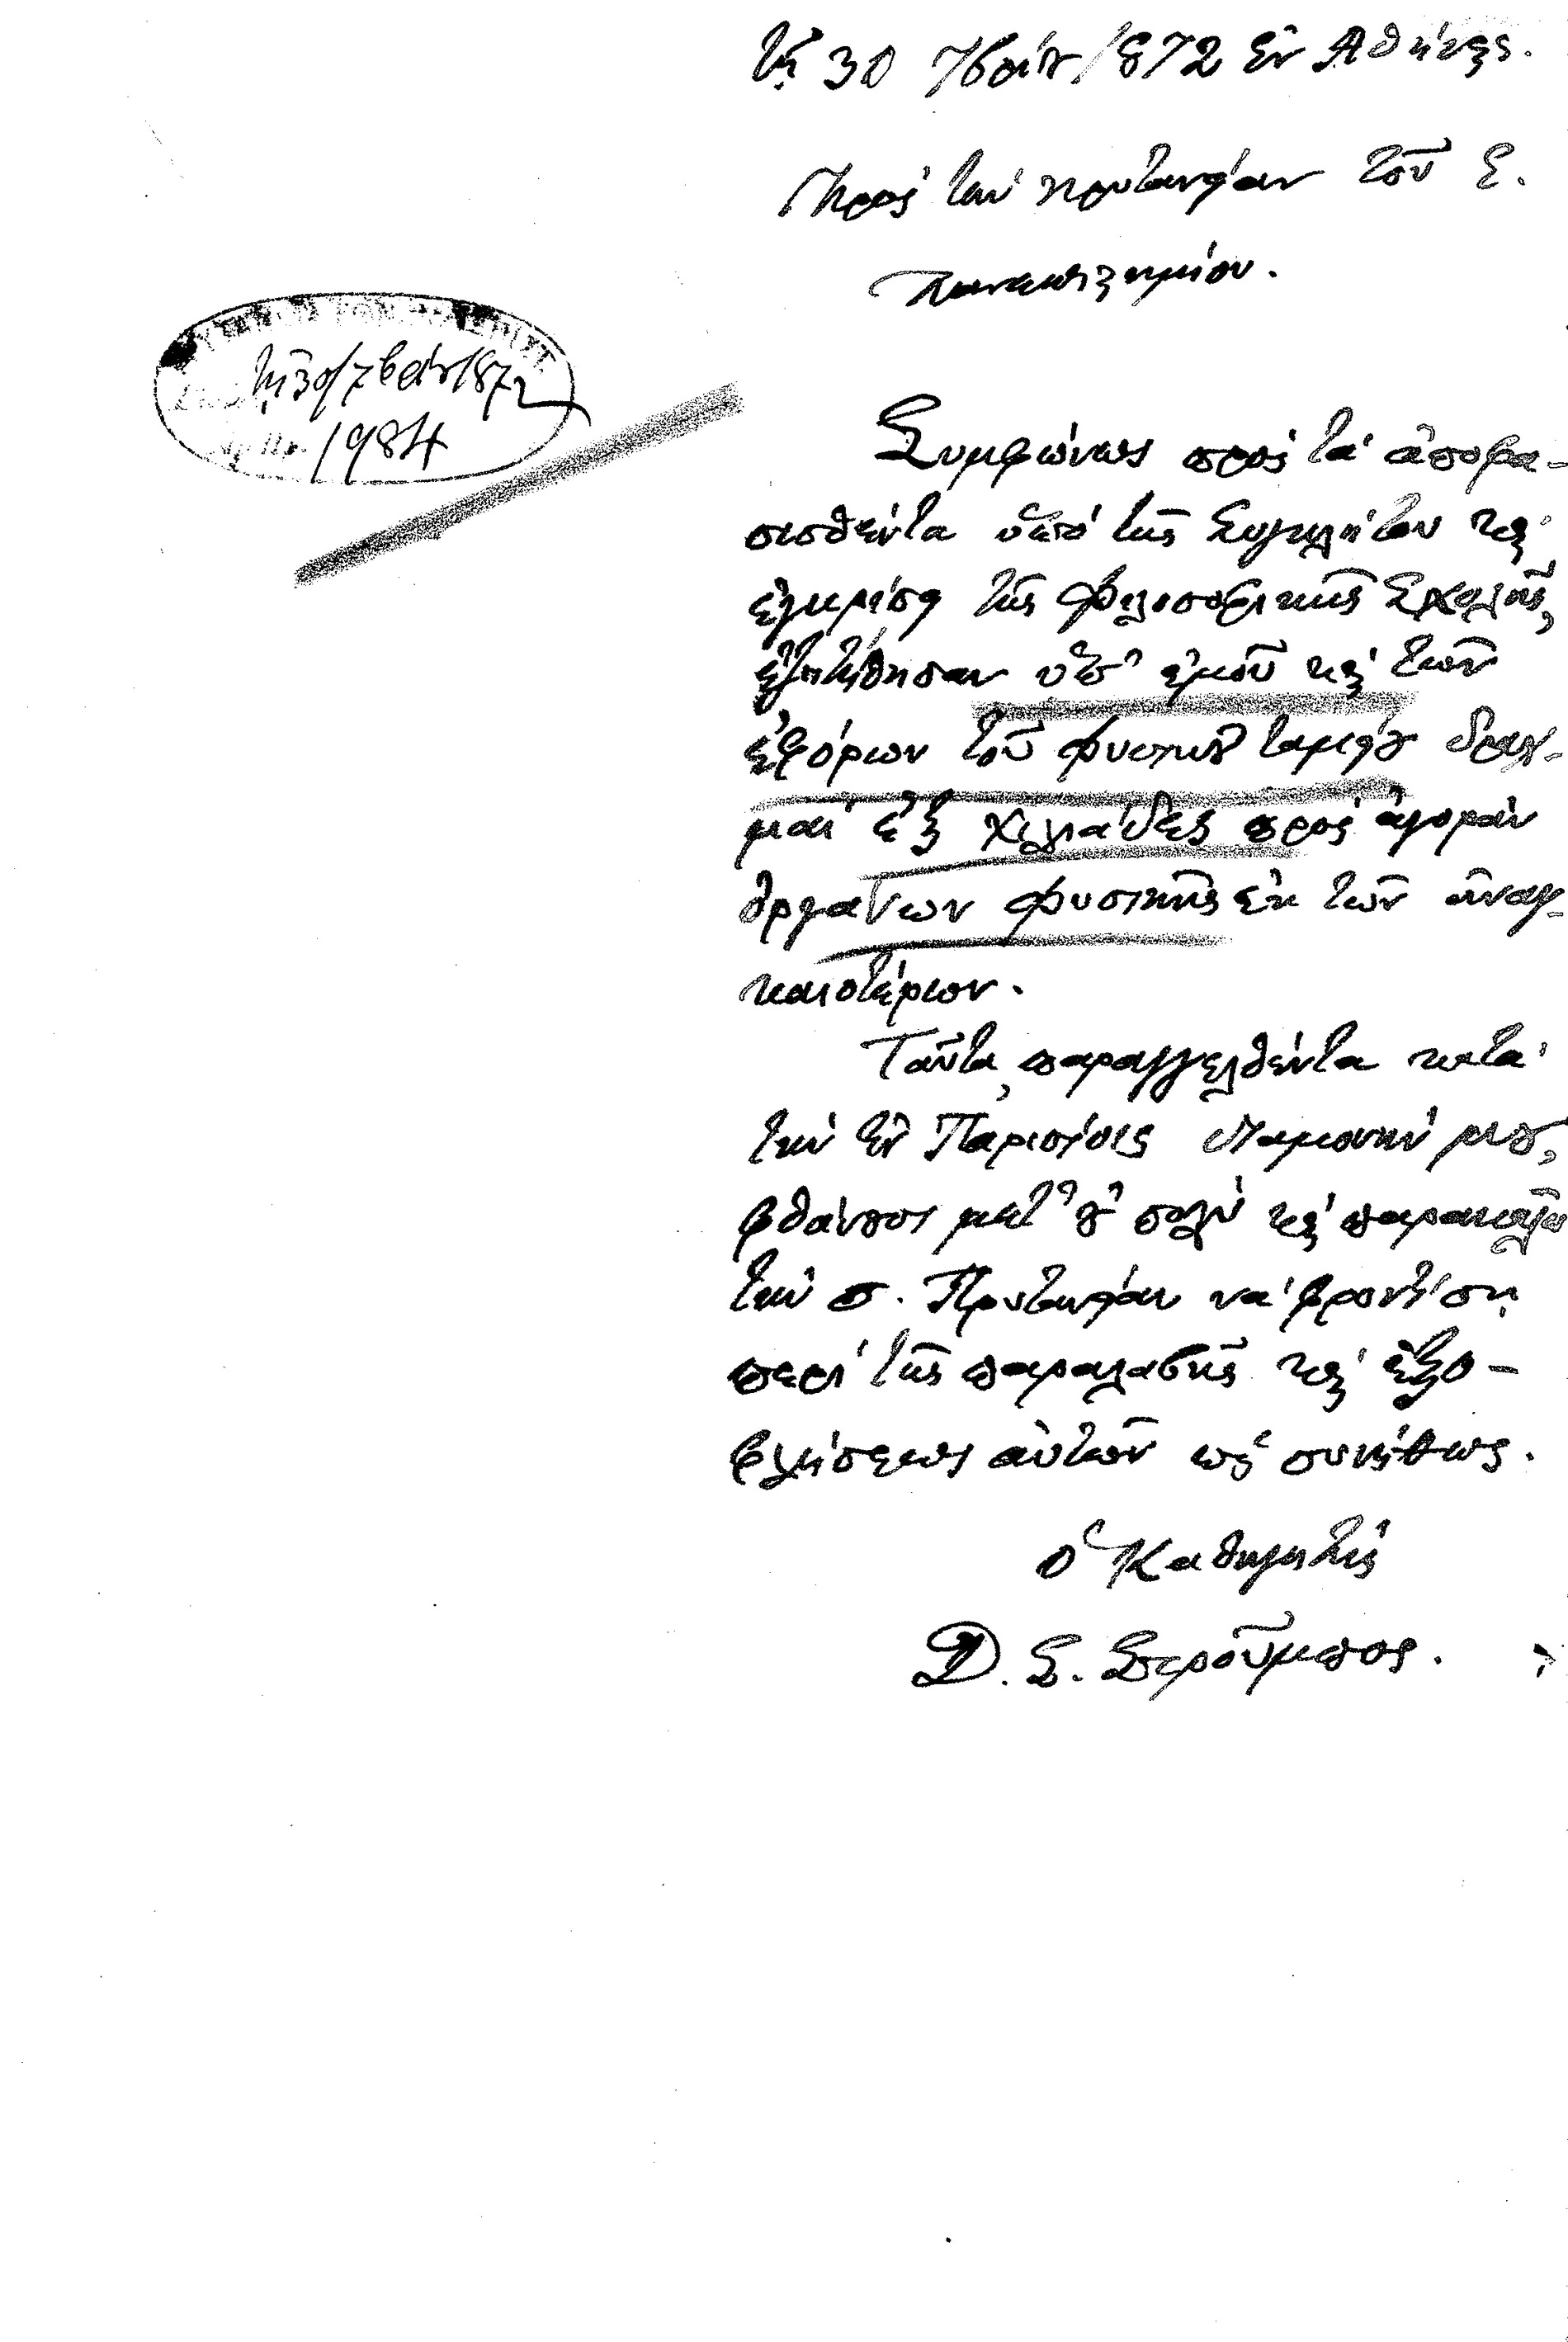 τῇ 30 7βρίου 1872 ἐν Ἀθήναις.
Πρὸς τὴν πρυτανείαν τοῦ Ε.
Πανεπιστημίου.
τῇ 30/7βρίου 1872
1984
Συμφώνως πρὸς τὰ ἀποφα-
σισθέντα ὑπὸ τῆς Συγκλήτου καὶ
ἐγκρίσει τῆς Φιλοσοφικῆς Σχολῆς,
ἐζητήθησαν ὑπ' ἐμοῦ καὶ τῶν
ἐφόρων τοῦ φυσικοῦ ταμείου δραχ-
μαὶ ἓξ χιλιάδες πρὸς ἀγορὰν
ὀργάνων φυσικῆς ἐκ τῶν ἀναγ-
καιοτέρων.
Ταῦτα, παραγγελθέντα κατὰ
τὴν ἐν Παρισίοις διαμονήν μου,
φθάνουσι μετ' οὐ πολὺ καὶ παρακαλῶ
τὴν σ. Πρυτανείαν νὰ φροντίσῃ
περὶ τῆς παραλαβῆς καὶ ἐξο-
φλήσεως αὐτῶν ὡς συνήθως.
ὁ Καθηγητὴς
Δ. Σ. Στρούμπος.